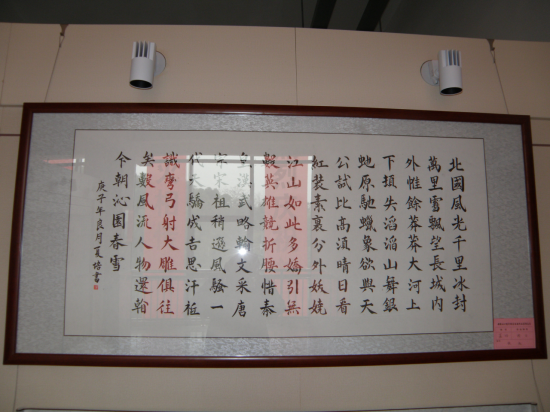 北國風光千里冰封
萬里雪飄望長城內
外惟餘莽莽大河上
下頓失滔滔山舞銀
蛇原馳蠟象欲與天
公試比高須晴日看
紅裝素裹分外妖嬈
江山如此多嬌引無
數英雄競折腰惜秦
皇漢武略輸文采唐
宗宋祖稍遜風騷一
代天驕成吉思汗祇
識彎弓射大雕俱往
矣數風流人物還看
今朝沁園春雪
庚子年良月夏培書